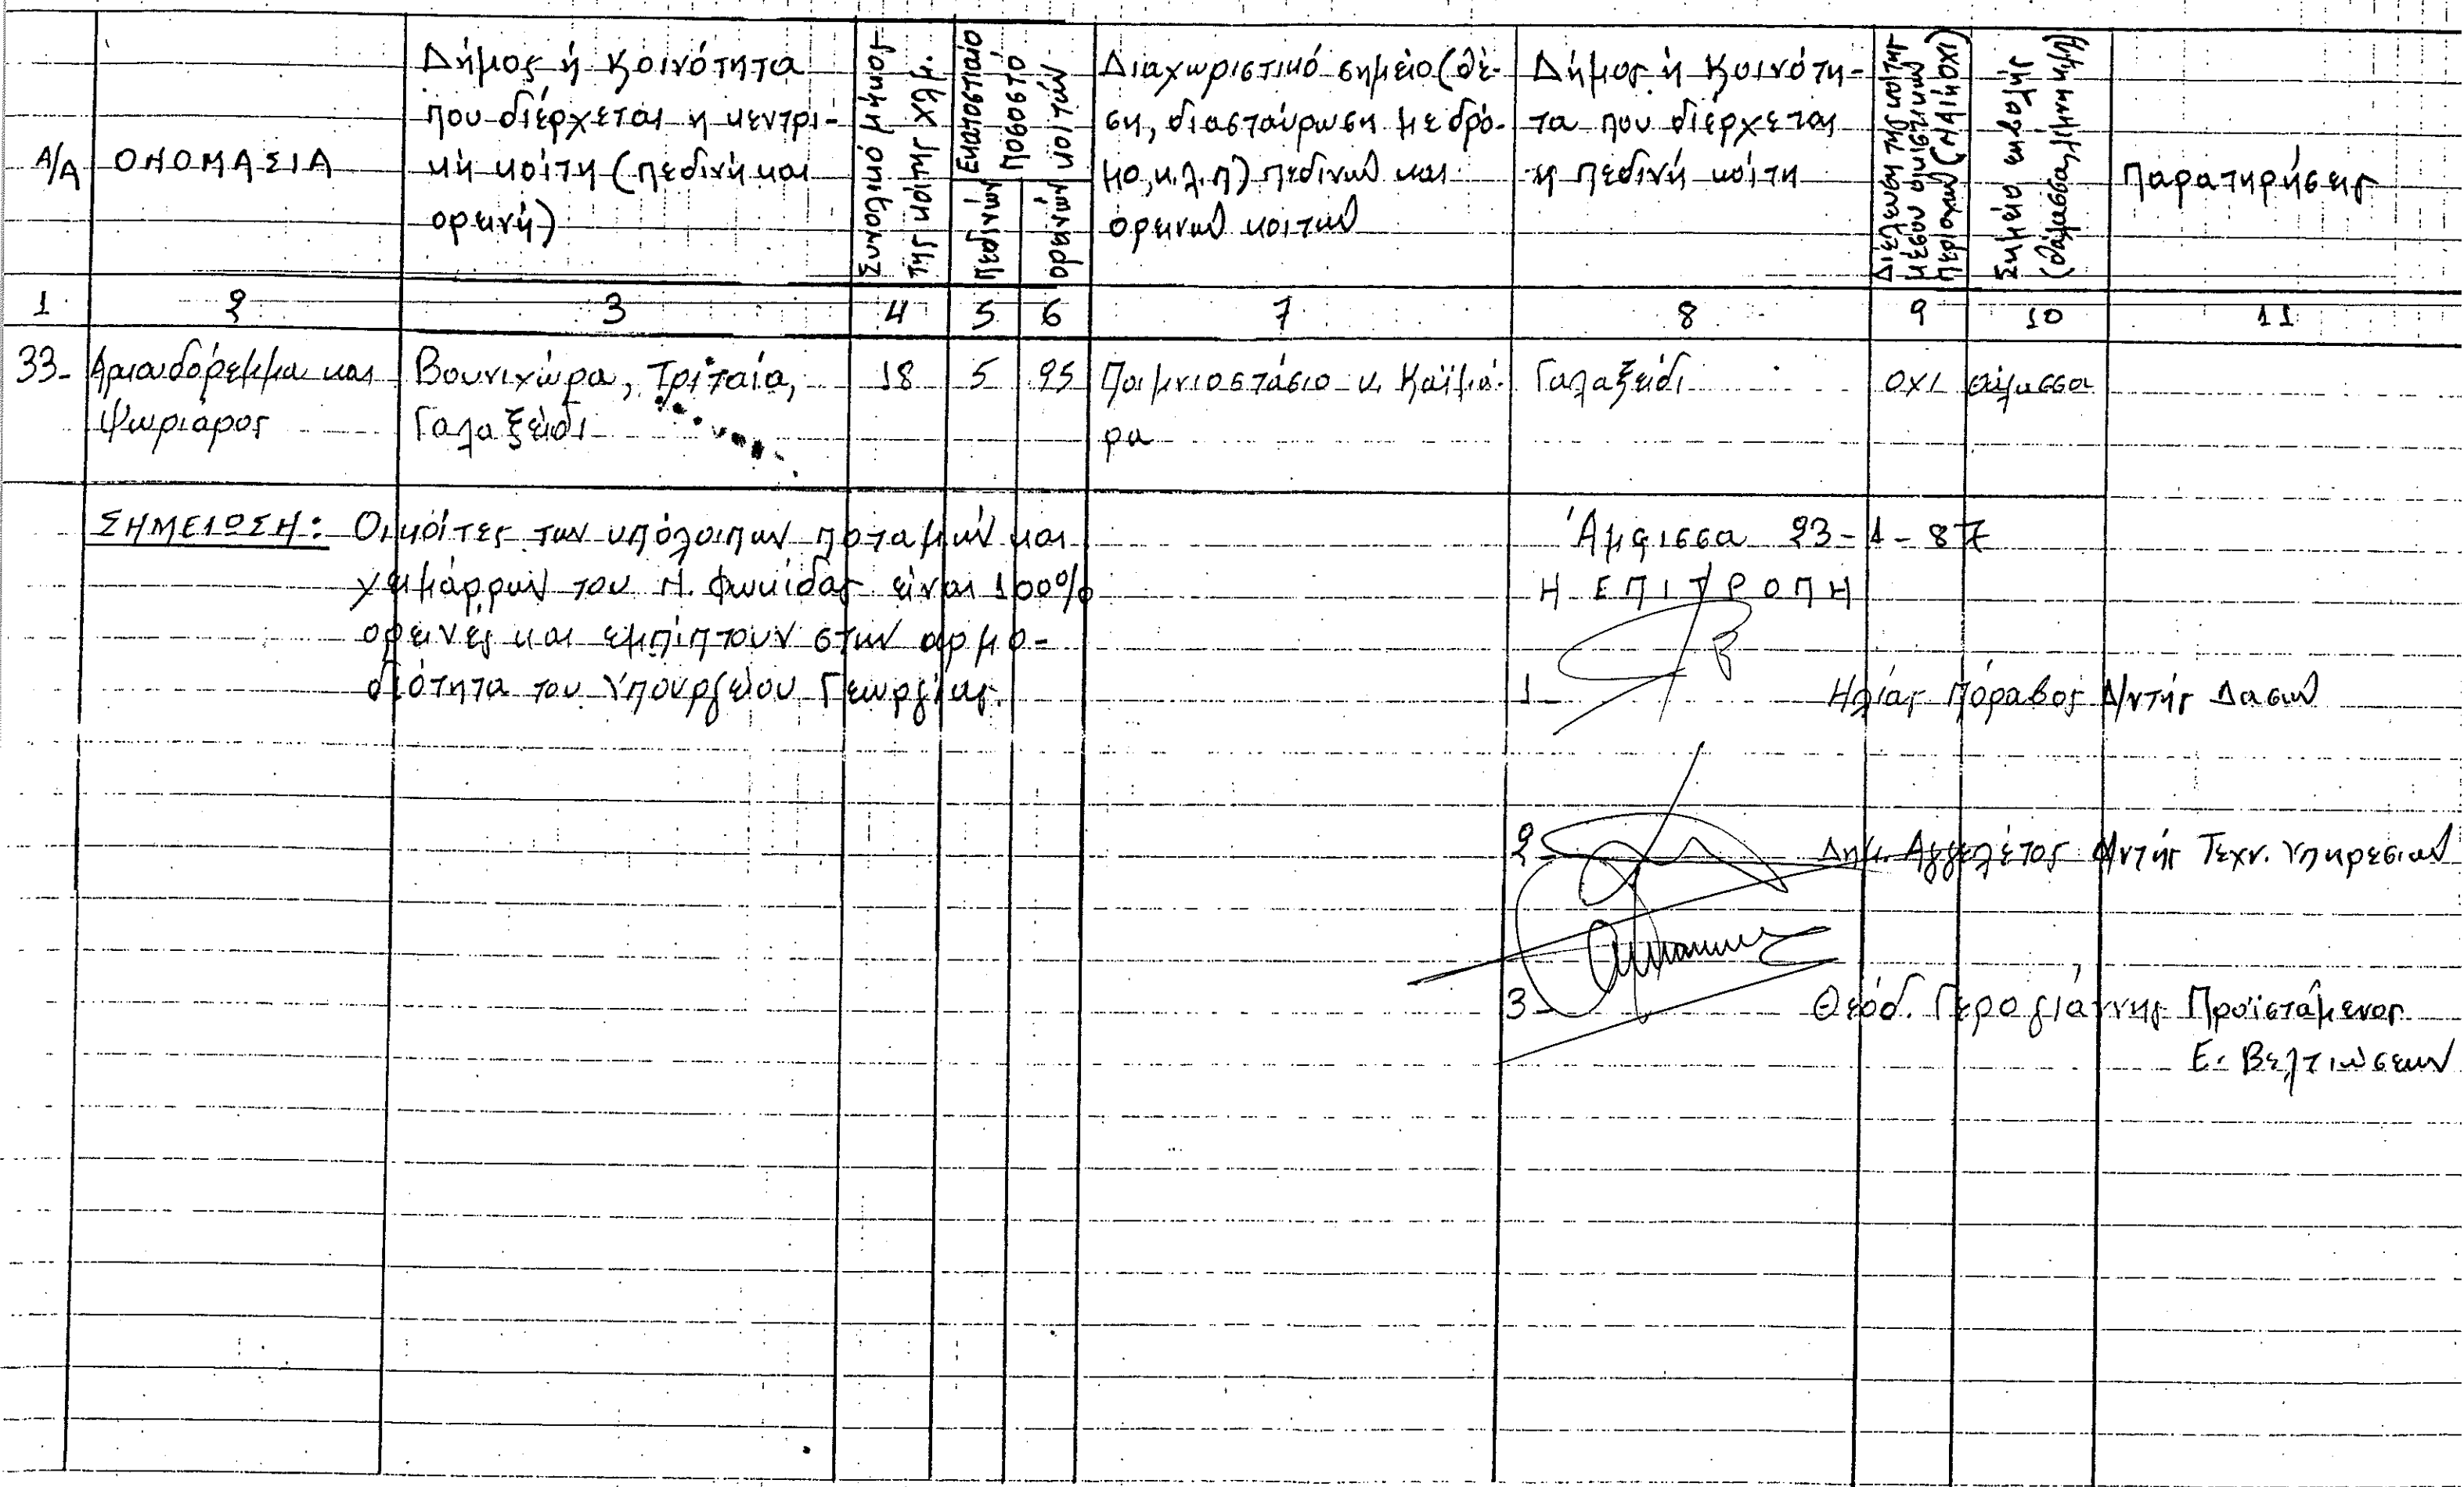 Α/Α
ΟΝΟΜΑΣΙΑ
Δήμος ή Κοινότητα
που διέρχεται η κεντρι-
κή κοίτη (πεδινή και
ορεινή)
Συνολικό μήκος
της κοίτης χλμ.
Εκατοστιαίο
ποσοστό
κοιτών
πεδινών
ορεινών
Διαχωριστικό σημείο (θέ-
ση, διασταύρωση με δρό-
μο, κ.λ.π) πεδινών και
ορεινών κοιτών
Δήμος ή Κοινότη-
τα που διέρχεται
η πεδινή κοίτη
Διέλευση της κοίτης
μέσου οικιστικών
περιοχών (ΝΑΙ ή ΟΧΙ)
Σημείο εκβολής
(θάλασσα, λίμνη κ.λ.π)
Παρατηρήσεις
1 2 3 4 5 6 7 8 9 10 11
33- και Βουνιχώρα, Τριταία, 18 5 95 Ποιμνιοστάσιο κ. Καϊμά- Γαλαξείδι ΟΧΙ θάλασσα
Ψωριάρος Γαλαξείδι ρα
ΣΗΜΕΙΩΣΗ: Οι κοίτες των υπόλοιπων ποταμών και
χειμάρρων του Ν. Φωκίδας είναι 100%
ορεινές και εμπίπτουν στην αρμο-
διότητα του Υπουργείου Γεωργίας.
Άμφισσα 23-1-87
Η ΕΠΙΤΡΟΠΗ
1- Ηλίας Πόραβος Δ/ντής Δασών
2- Δημ. Αγγελέτος Δ/ντής Τεχν. Υπηρεσιών
3- Θεόδ. Γερογιάννης Προϊστάμενος
Ε. Βελτιώσεων